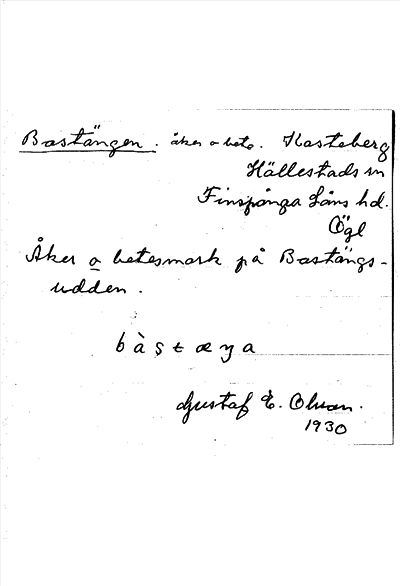 Bastängen. åker o bete. Kasteberg
Hällestads sn
Finspånga läns hd.
Ögl
Åker o betesmark på Bastängs-
udden.
b à s t æ ŋ a
Gustaf E. Olson.
1930